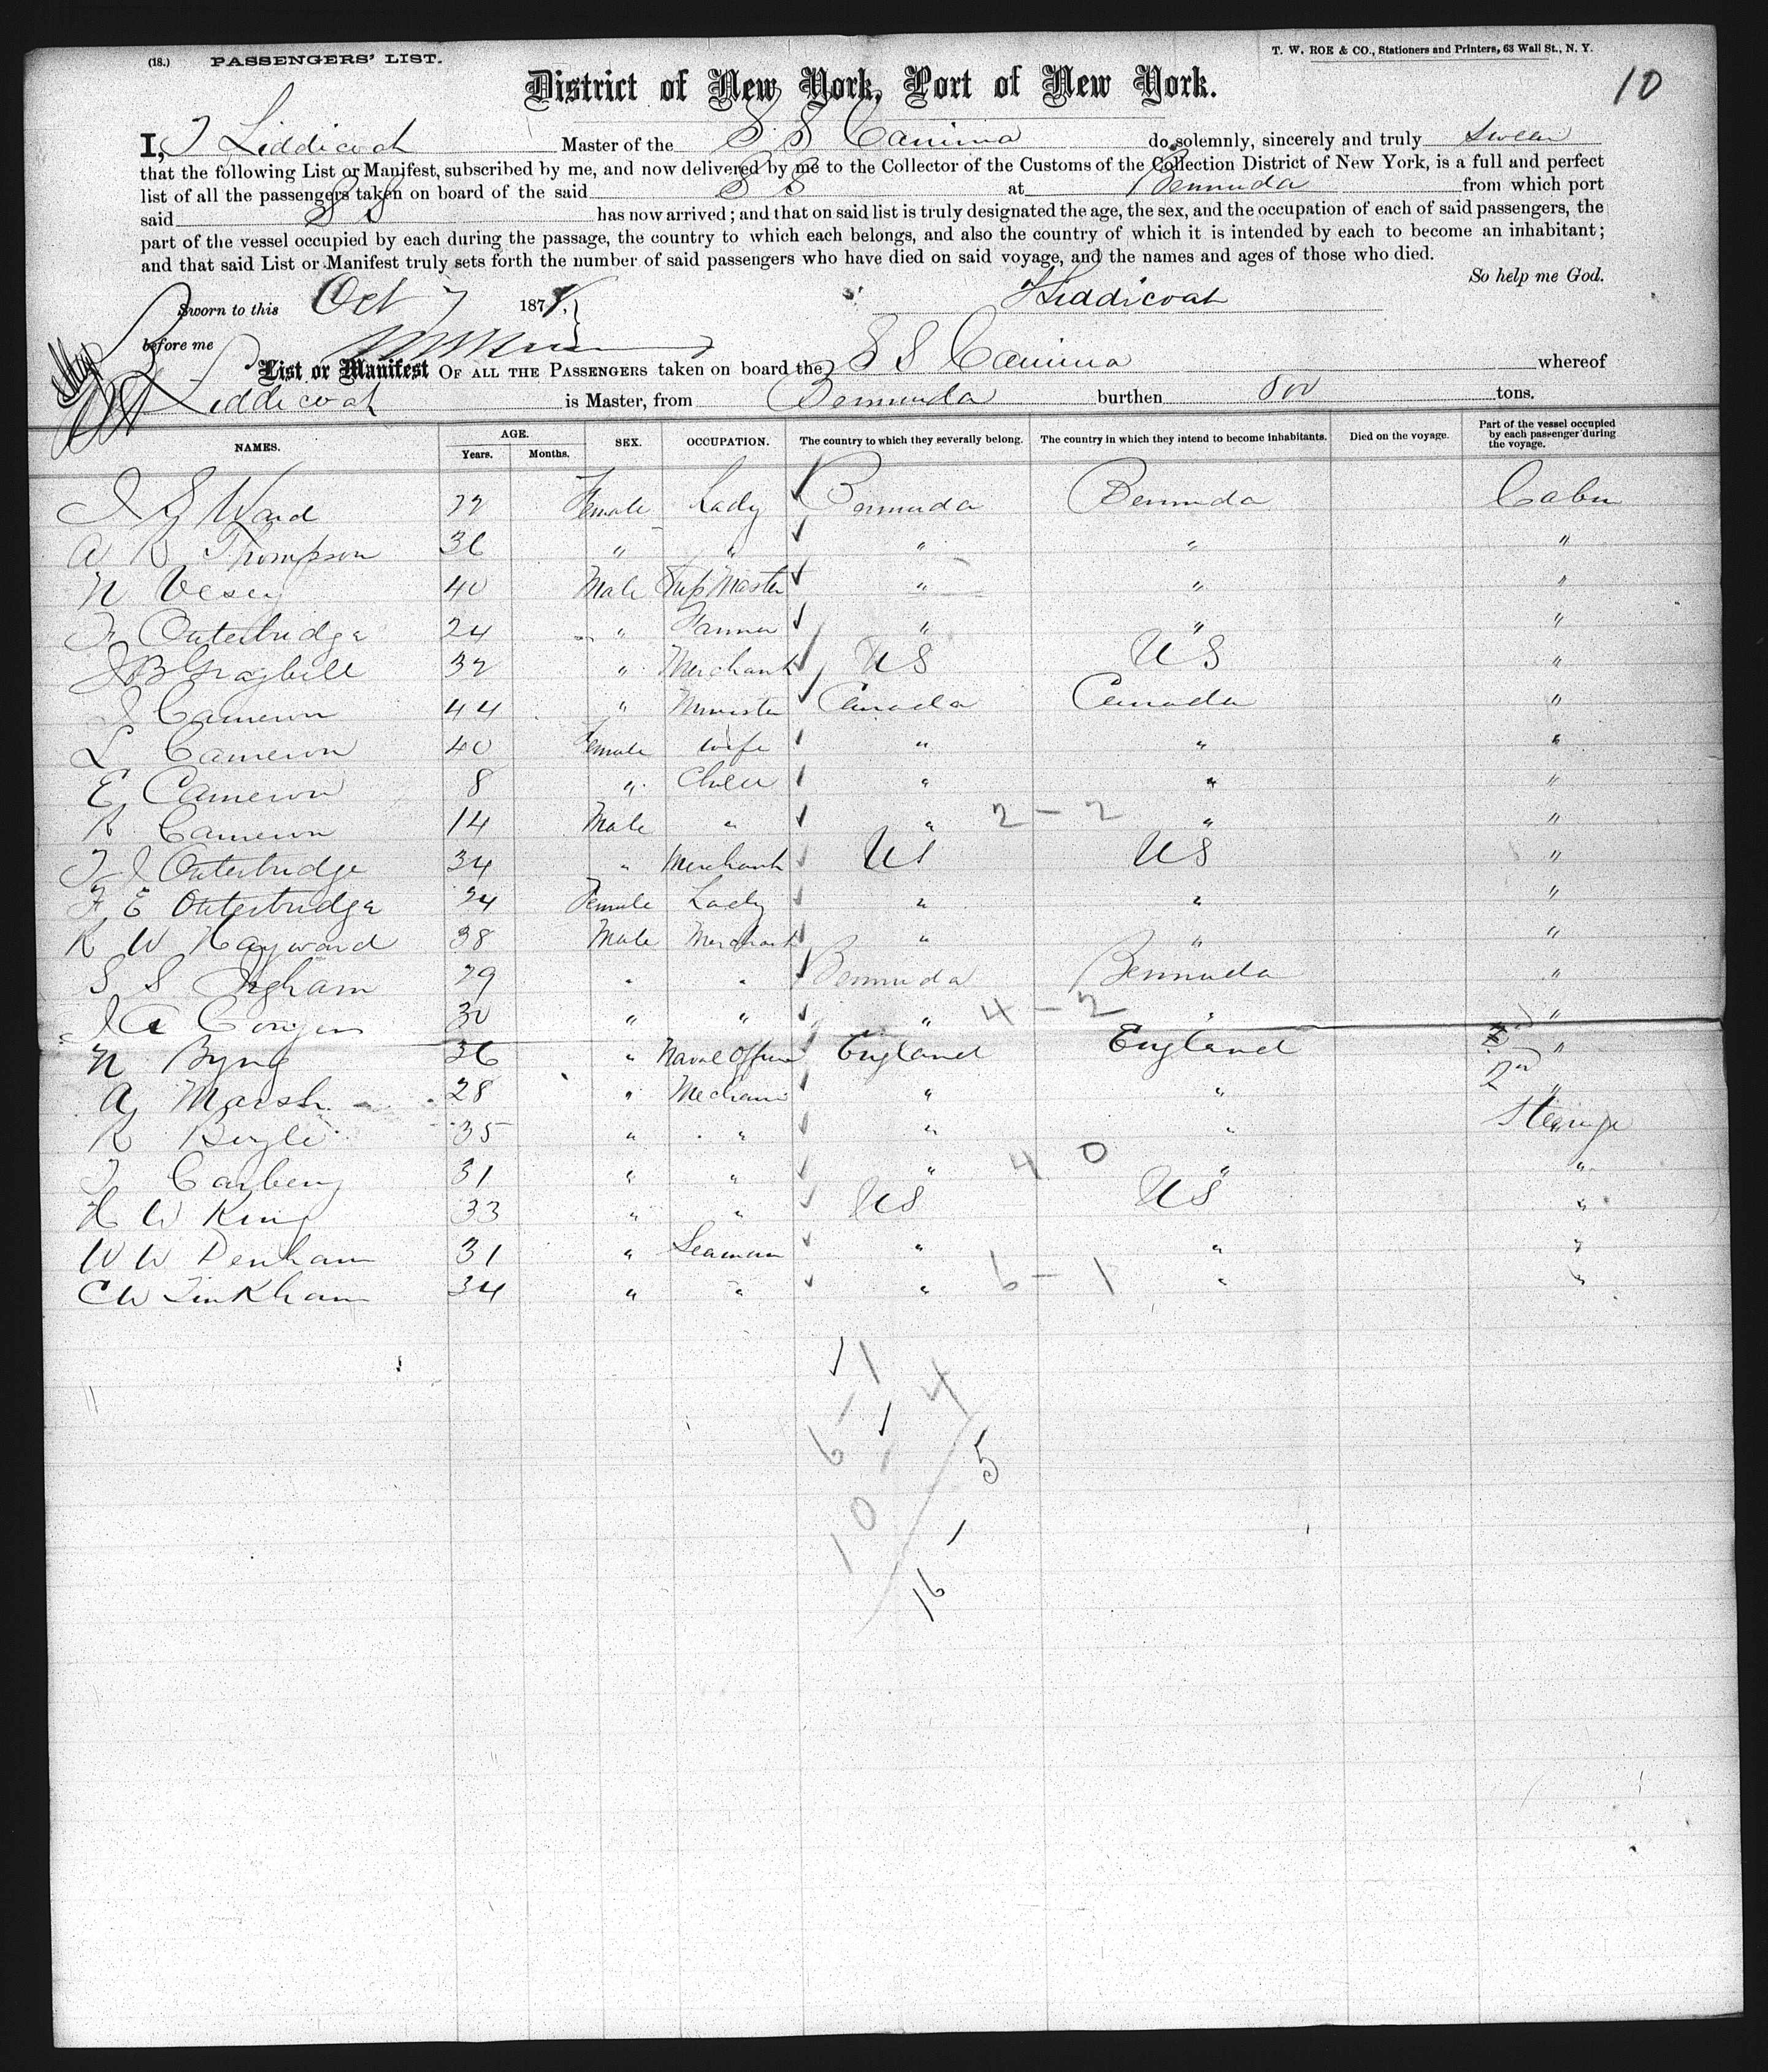 (18.) PASSENGERS' LIST.
T. W. ROE & CO., Stationers and Printers, 63 Wall St., N. Y.
10
District of New York, Port of New York.
I, T Liddicoat Master of the S S Canima do solemnly, sincerely and truly swear
that the following List or Manifest, subscribed by me, and now delivered by me to the Collector of the Customs of the Collection District of New York, is a full and perfect
list of all the passengers taken on board of the said S S at Bermuda from which port
said S S has now arrived; and that on said list is truly designated the age, the sex, and the occupation of each of said passengers, the
part of the vessel occupied by each during the passage, the country to which each belongs, and also the country of which it is intended by each to become an inhabitant;
and that said List or Manifest truly sets forth the number of said passengers who have died on said voyage, and the names and ages of those who died.
So help me God.
Sworn to this Oct 7 187 Liddicoat
before me
List or Manifest OF ALL THE PASSENGERS taken on board the S S Canima whereof
Liddicoat is Master, from Bermuda burthen 800 tons.
NAMES. AGE. Years. Months. SEX. OCCUPATION. The country to which they severally belong. The country in which they intend to become inhabitants. Died on the voyage. Part of the vessel occupied by each passenger during the voyage.
Ward 22 Female Lady Bermuda Bermuda Cabin
A Thompson 36 " " " " "
N Vesey 40 Male Ship Master " " "
Outerbridge 24 " Farmer " " "
J B Graybill 32 " Merchant US US "
J Cameron 44 " Minister Canada Canada "
L Cameron 40 Female Wife " " "
E Cameron 8 " Child " " "
R Cameron 14 Male " " 2 - 2 " "
T J Outerbridge 34 " Merchant US US "
F E Outerbridge 24 Female Lady " " "
R W Hayward 38 Male Merchant " " "
S S Ingham 29 " " Bermuda Bermuda "
J A 30 " " " 4 - 2 " "
N Byng 36 " Naval Officer England England "
A Marsh 28 " Mechanic " " 2nd "
R Boyle 35 " " " " Steerage
T Carbery 31 " " " 4 0 " "
H W King 33 " " US US "
W W Denham 31 " Seaman " " "
C W Tinkham 34 " " " 6 - 1 " "
1
6 - 4
5
10
1
16